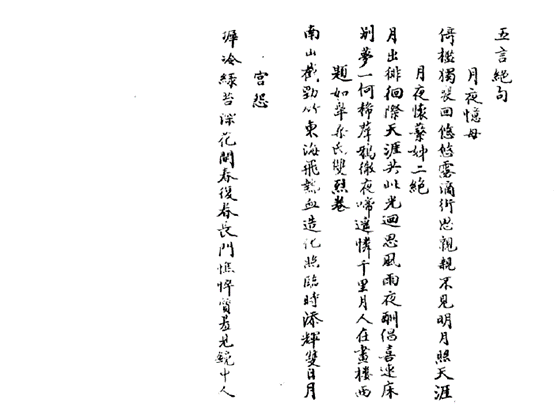 五言絕句
月夜憶母
倚檻獨裴回悠悠露滴街思親親不見明月照天涯
月夜懷蔡姊二絕
月出徘徊際天涯共此光迴思風雨夜酬倡喜連床
別夢一何稀群鴉徹夜啼遙憐千里月人在畫樓西
題如氏雙烈卷
南山截勁竹東海飛熱血造化照臨時添輝雙日月
宮怨
墀冷綠苔深花開春復春長門憔悴質羞見鏡中人